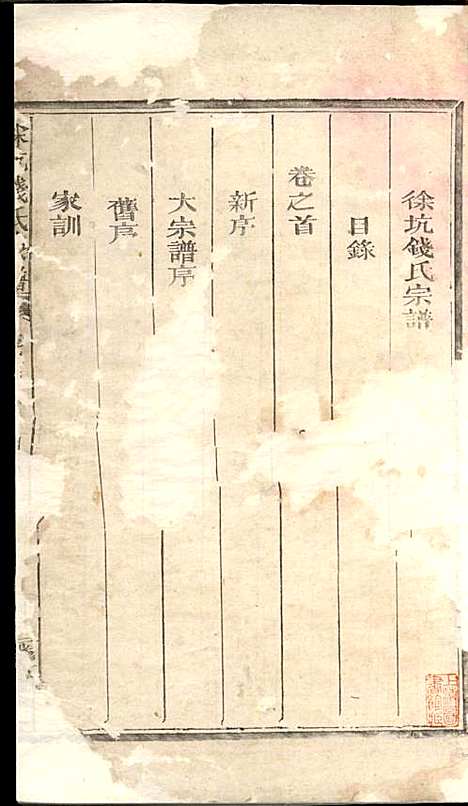 徐坑錢氏宗譜
目錄
卷之首
新序
大宗譜序
舊序
家訓